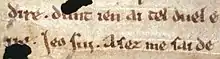 dire. dunt ieo ai tel duel e
Jeo sui. Asez me sai de